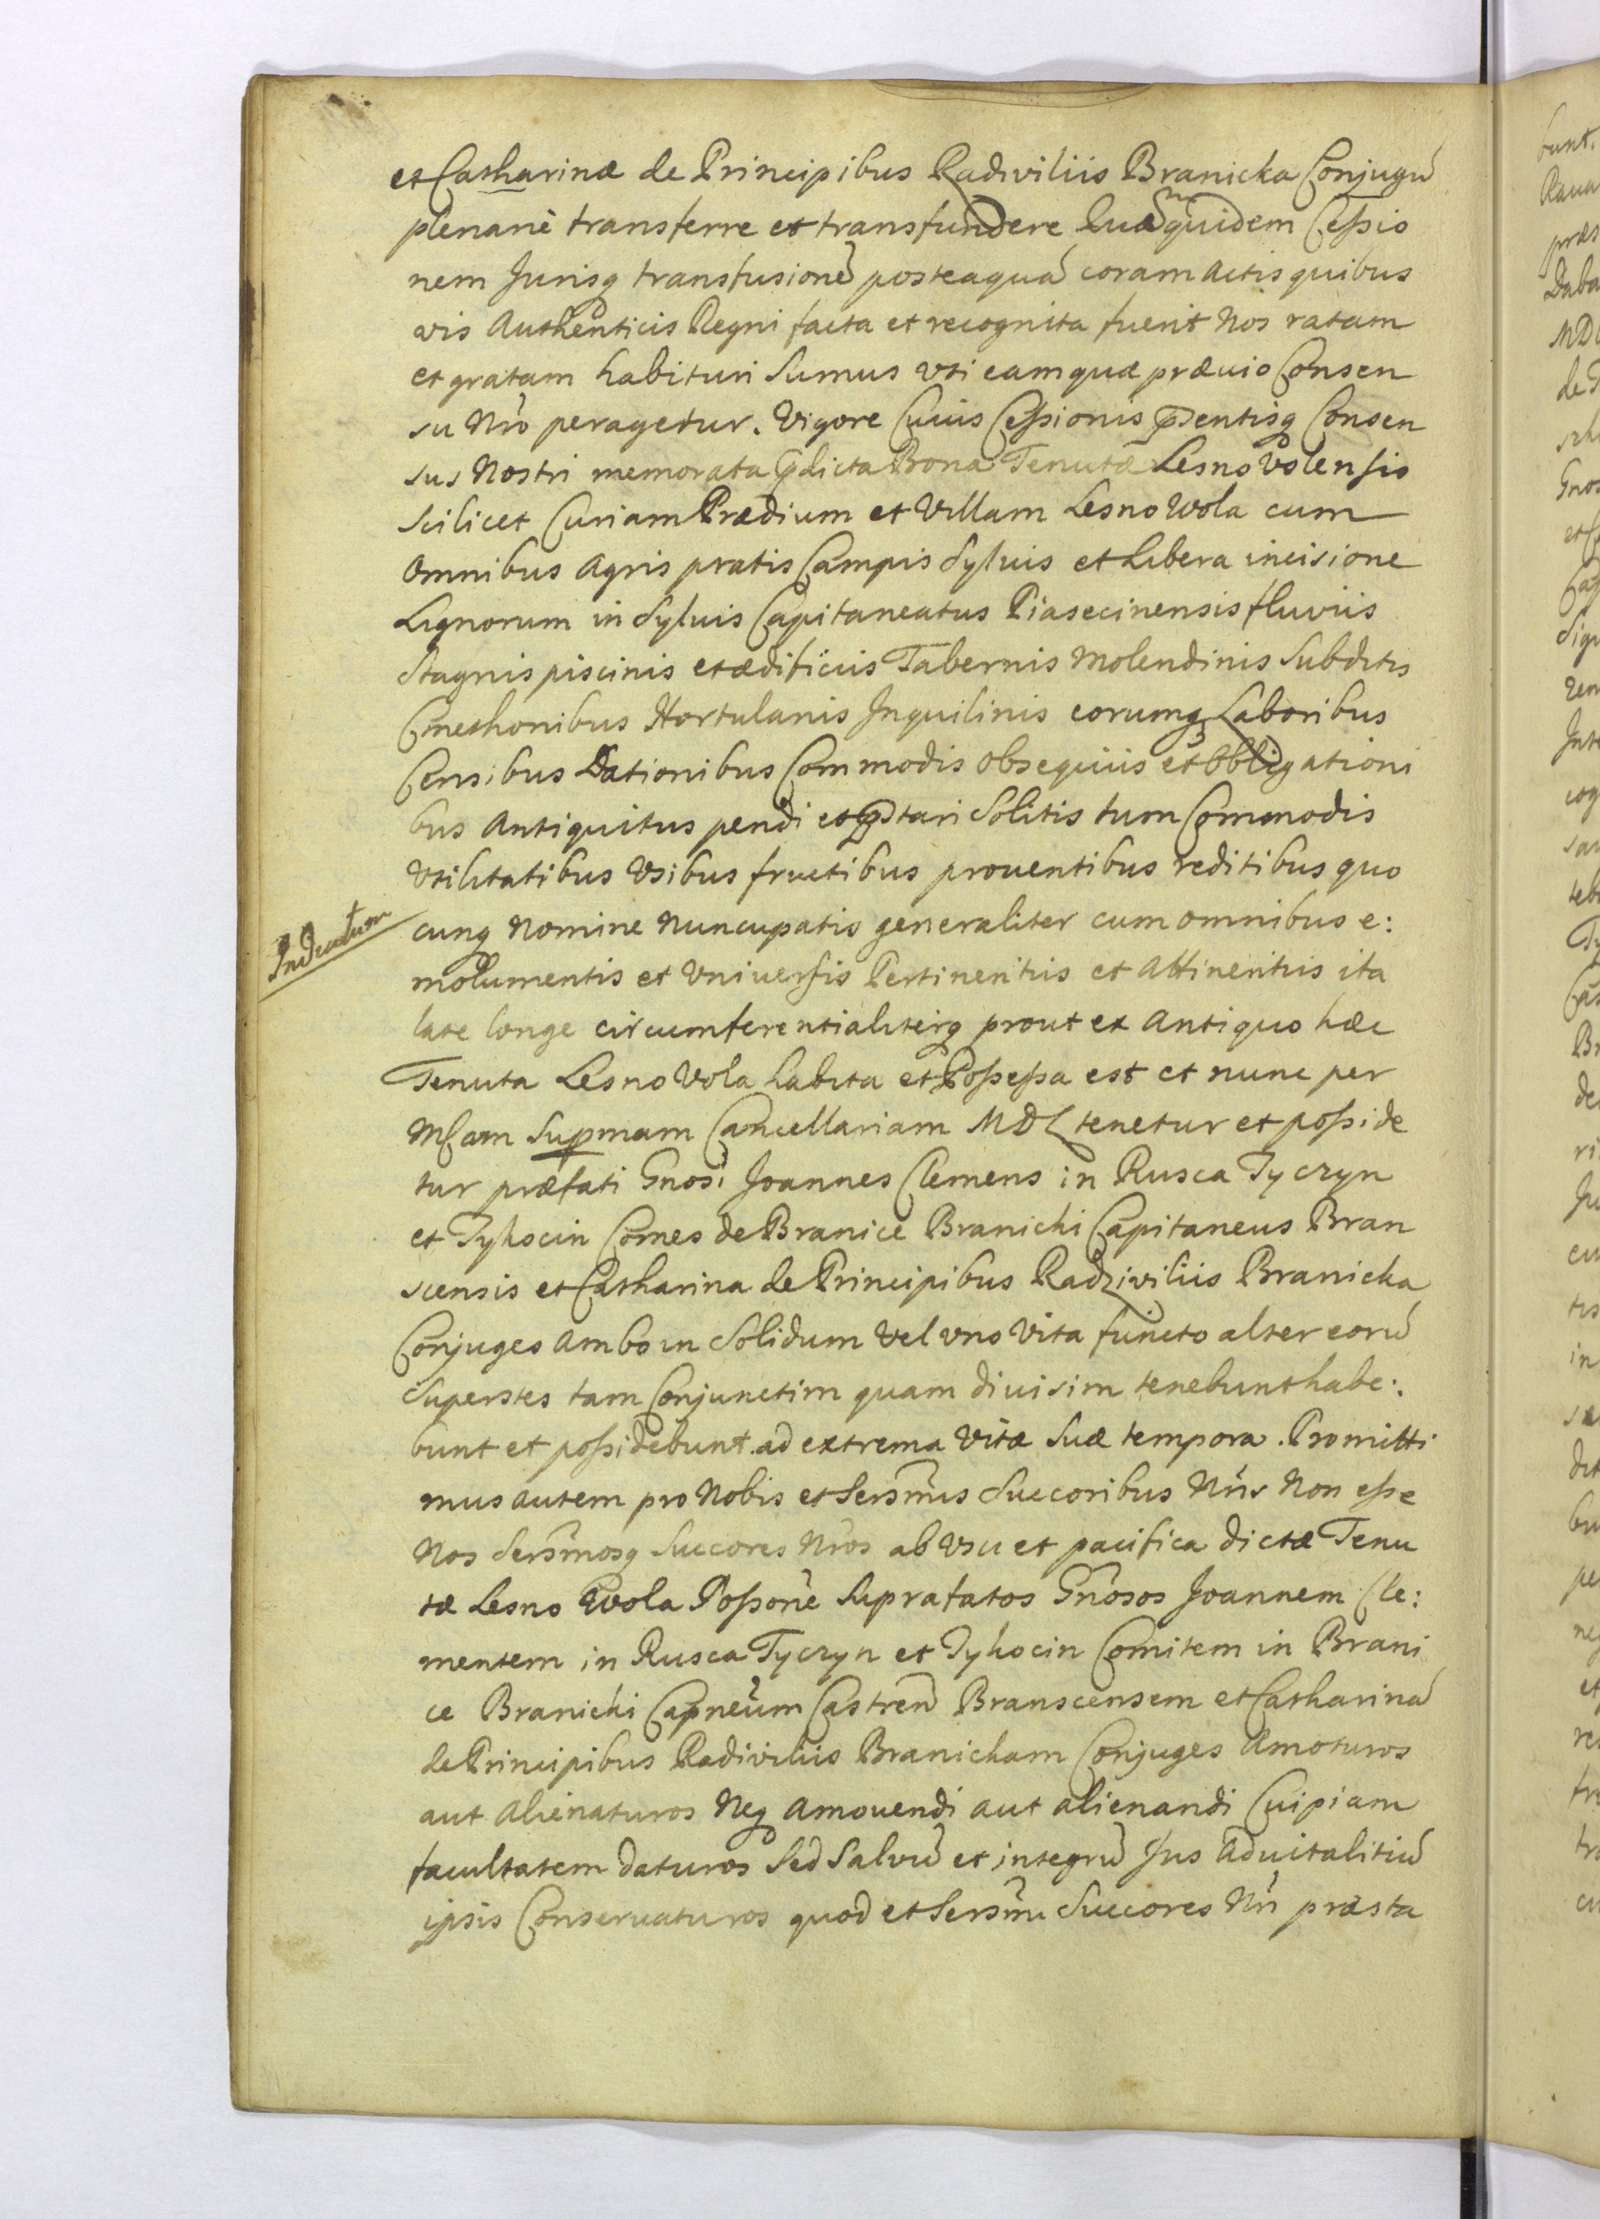 et Catharinæ de Principibus Radziviliis Branicka Conjugũ
plenariè transferre et transfundere Quã quidem Cessio
nem Jurisq transfusionẽ posteaquã coram actis quibus
vis Authenticis Regni facta et recognita fuerit Nos ratam
et gratam habituri Sumus vti eam quæ præuio Consen
su Nr̃o peragetur. Vigore Cuius Cessionis p̃sentisq Consen
sus Nostri memorata p̃dicta Bona Tenutæ Lesno Volensis
Scilicet Curiam Prædium et Villam Lesno Wola cum
omnibus Agris pratis Campis Syluis et Libera incisione
Lignorum in Syluis Capitaneatus Piasecinensis fluviis
Stagnis piscinis et ædificiis Tabernis Molendinis Subditis
Cmethonibus Hortulanis Inquilinis eorumq Laboribus
Censibus Dationibus Commodis obsequiis et obligationi
bus Antiquitus pendi et p̃stari Solitis tum Commodis
Vtilitatibus Vsibus fructibus prouentibus reditibus quo
cunq Nomine Nuncupatis generaliter cum omnibus e:
Inductum
molumentis et Vniuersis Pertinentiis et Attinentiis ita
late longe circumferentialiterq prout ex Antiquo hæc
Tenuta Lesno Vola habita et Possessa est et nunc per
M̃Cam Suprmam Cancellariam MDL tenetur et posside
tur præfati Gnosi Joannes Clemens in Rusca Tyczyn
et Tykocin Comes de Branice Branicki Capitaneus Bran
scensis et Catharina de Principibus Radziviliis Branicka
Conjuges Ambo in Solidum vel vno Vita functo alter eorũ
Superstes tam Conjunctim quam diuisim tenebunt habe:
bunt et possidebunt ad extrema Vitæ Suæ tempora. Promitti
mus autem pro Nobis et Sersm̃is Succoribus Nr̃is Non esse
Nos Sersm̃osq Succores Nr̃os ab Vsu et pacifica dictæ Tenu
tæ Lesno Wola Posson̄e Suprafatos Gñosos Joannem Cle:
mentem in Rusca Tyczyn et Tykocin Comitem in Brani
ce Branicki Capnẽum Castren̄ Branscensem et Catharinã
de Principibus Radiviliis Branickam Conjuges Amoturos
aut Alienaturos Neq Amouendi aut alienandi Cuipiam
facultatem daturos Sed Salvũ et integrũ Jus Aduitalitiũ
ipsis Conseruaturos quod et Sersm̃i Succores Nr̃i præsta